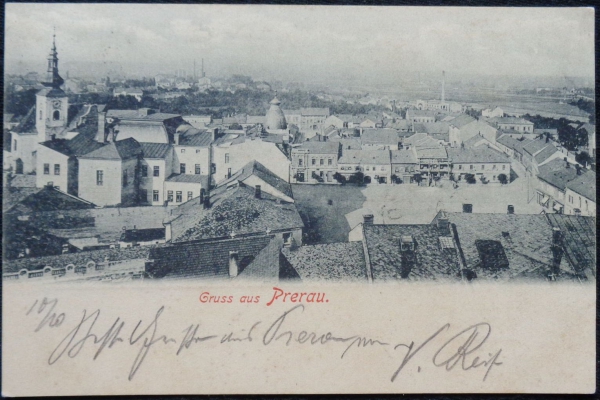 Gruss aus Prerau.
10/10 Beste Grüsse aus Prerau von V. Reif